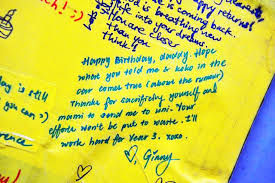 ch!! :)
returns!
coming back.
is breathing new
life into your dreams.
You are closer
than you
think!!
Happy Birthday, daddy. Hope
what you told me & keko in the
car comes true (about the rumour)
Thanks for sacrificing yourself and
mami to send me to uni. Your
efforts won't be put to waste. I'll
work hard for Year 3. xoxo.
♡, Ginny
day is still
you can :)